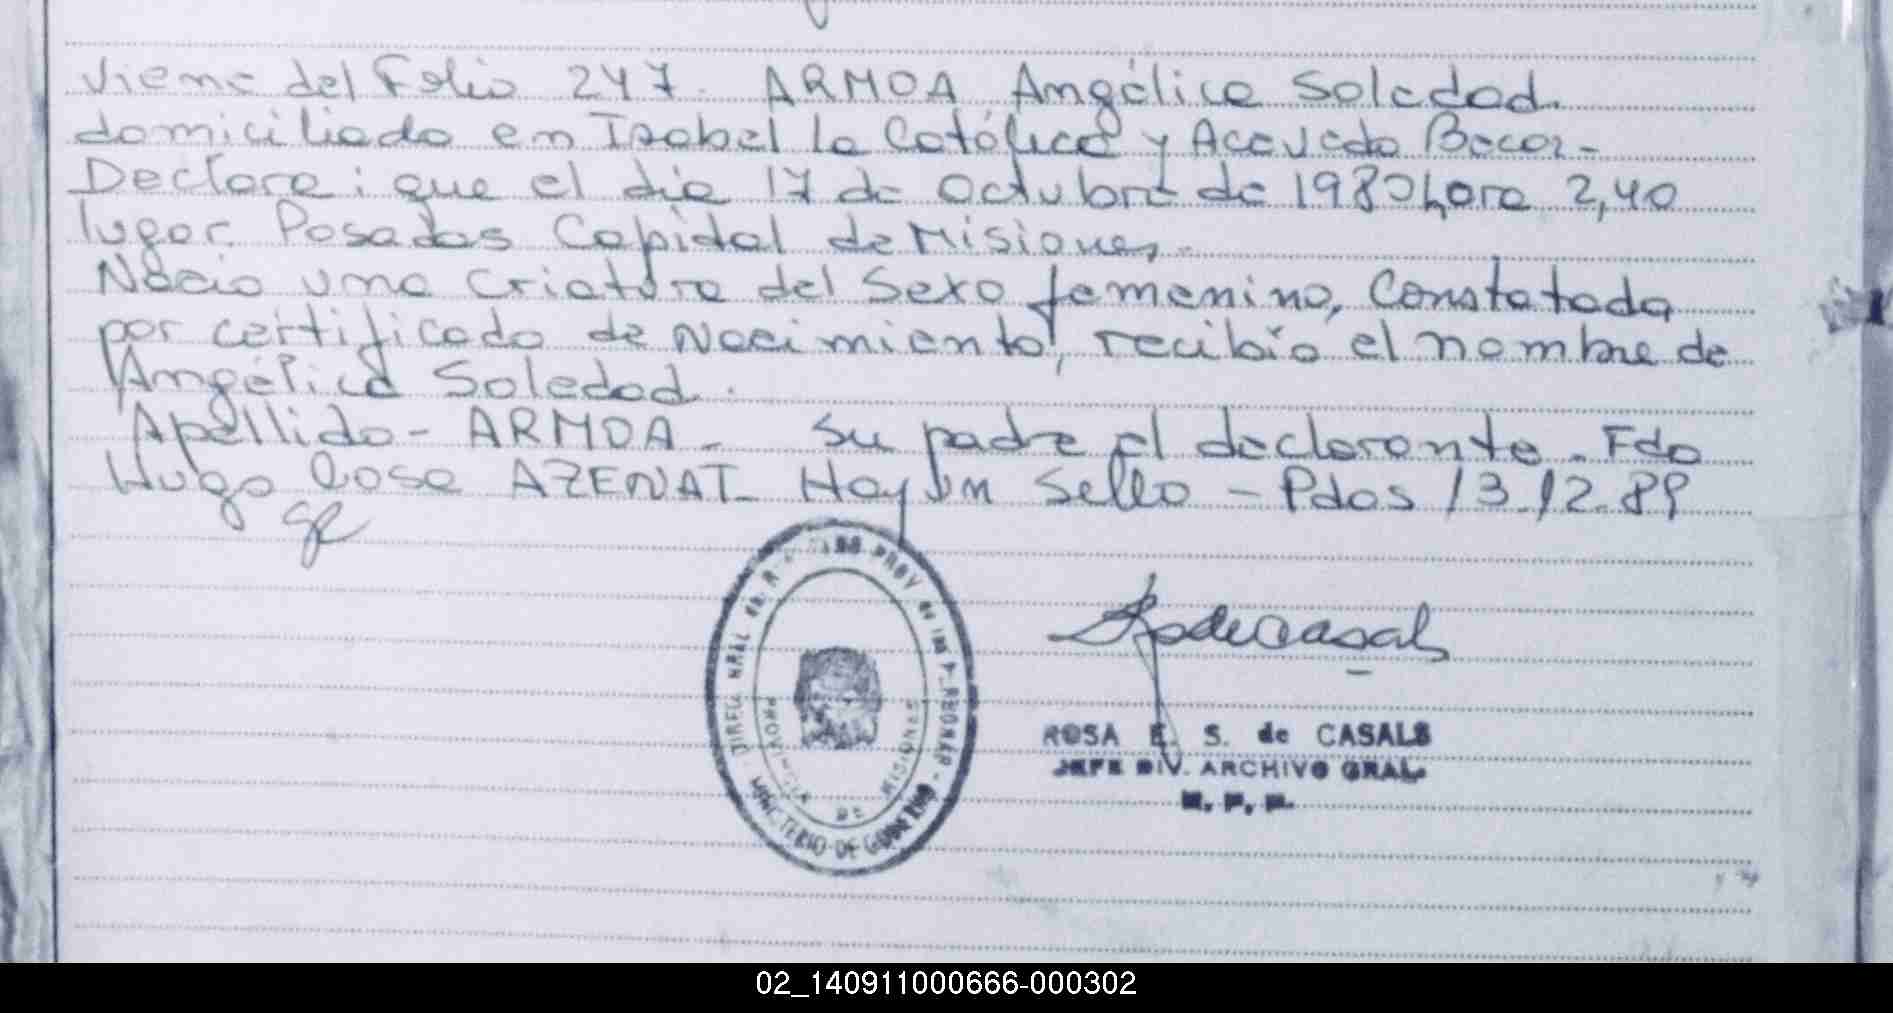 Viene del Folio 247. ARMOA Angélica Soledad.
domiciliado en Isabel la Católica y Acevedo Bocor-
Declara: que el día 17 de Octubre de 1980 hora 2,40
lugar Posadas Capital de Misiones.
Nació una criatura del sexo femenino, Constatada
por certificado de Nacimiento, recibio el nombre de
Angélica Soledad.
Apellido - ARMOA - Su padre el declarante. Fdo
Hugo Cosa AZENAT - Hay un Sello - Pdos 13.12.89
DIREC. GRAL de PROV de las PERSONAS - MINISTERIO DE GOBIERNO
PROVINCIA DE MISIONES
ROSA E. S. de CASALS
JEFE DIV. ARCHIVO GRAL.
R. P. P.
02_140911000666-000302